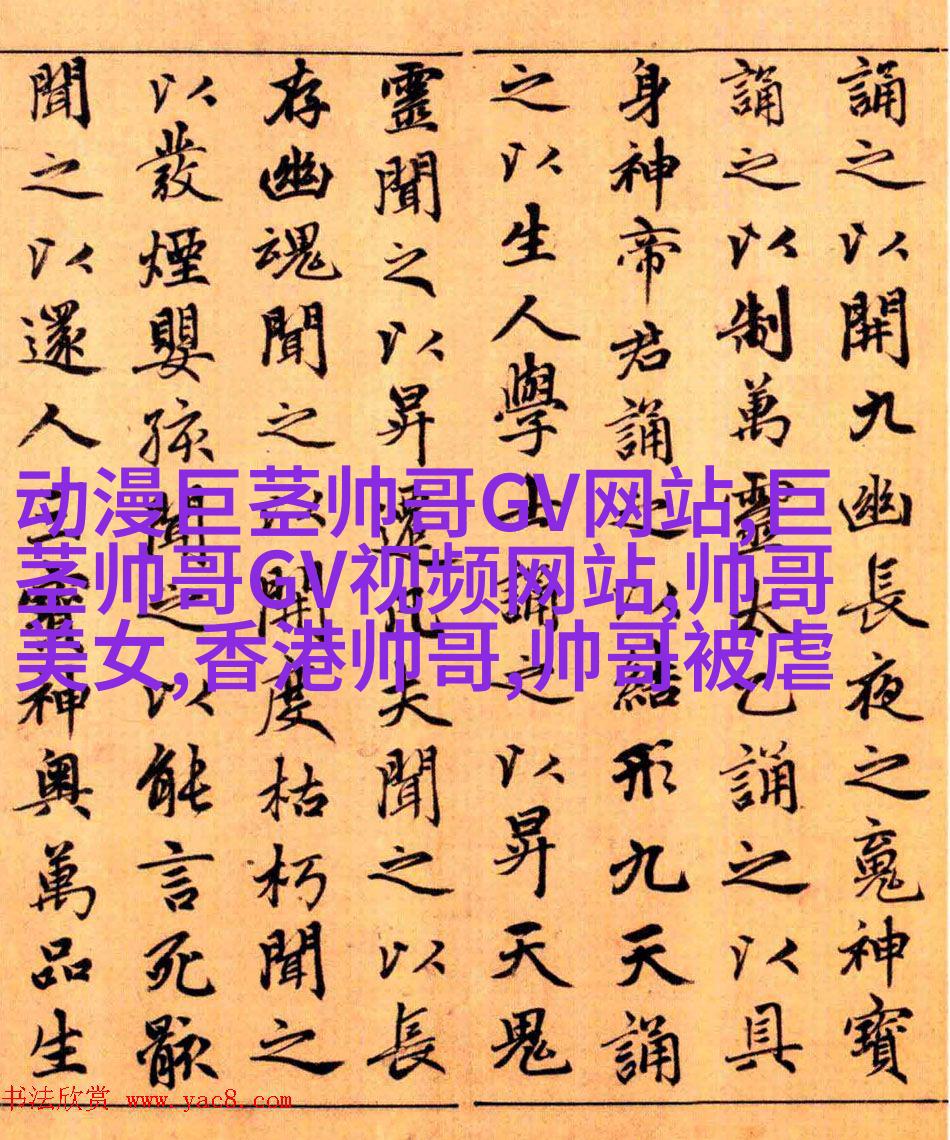 誦之以開九幽長夜之魂神寶
誦之以制萬靈太乙誦之以具
身神帝君誦之以結形九天誦
之以生人學士誦之以昇天鬼
靈聞之以昇遷凡夫聞之以長
存幽魂聞之以開度枯朽聞之
以發煙嬰孩聞之以能言死骸
聞之以還人三寶神奧萬品生
动漫巨茎帅哥GV网站,巨
茎帅哥GV视频网站,帅哥
美女,香港帅哥,帅哥被虐
书法欣赏 www.yac8.com